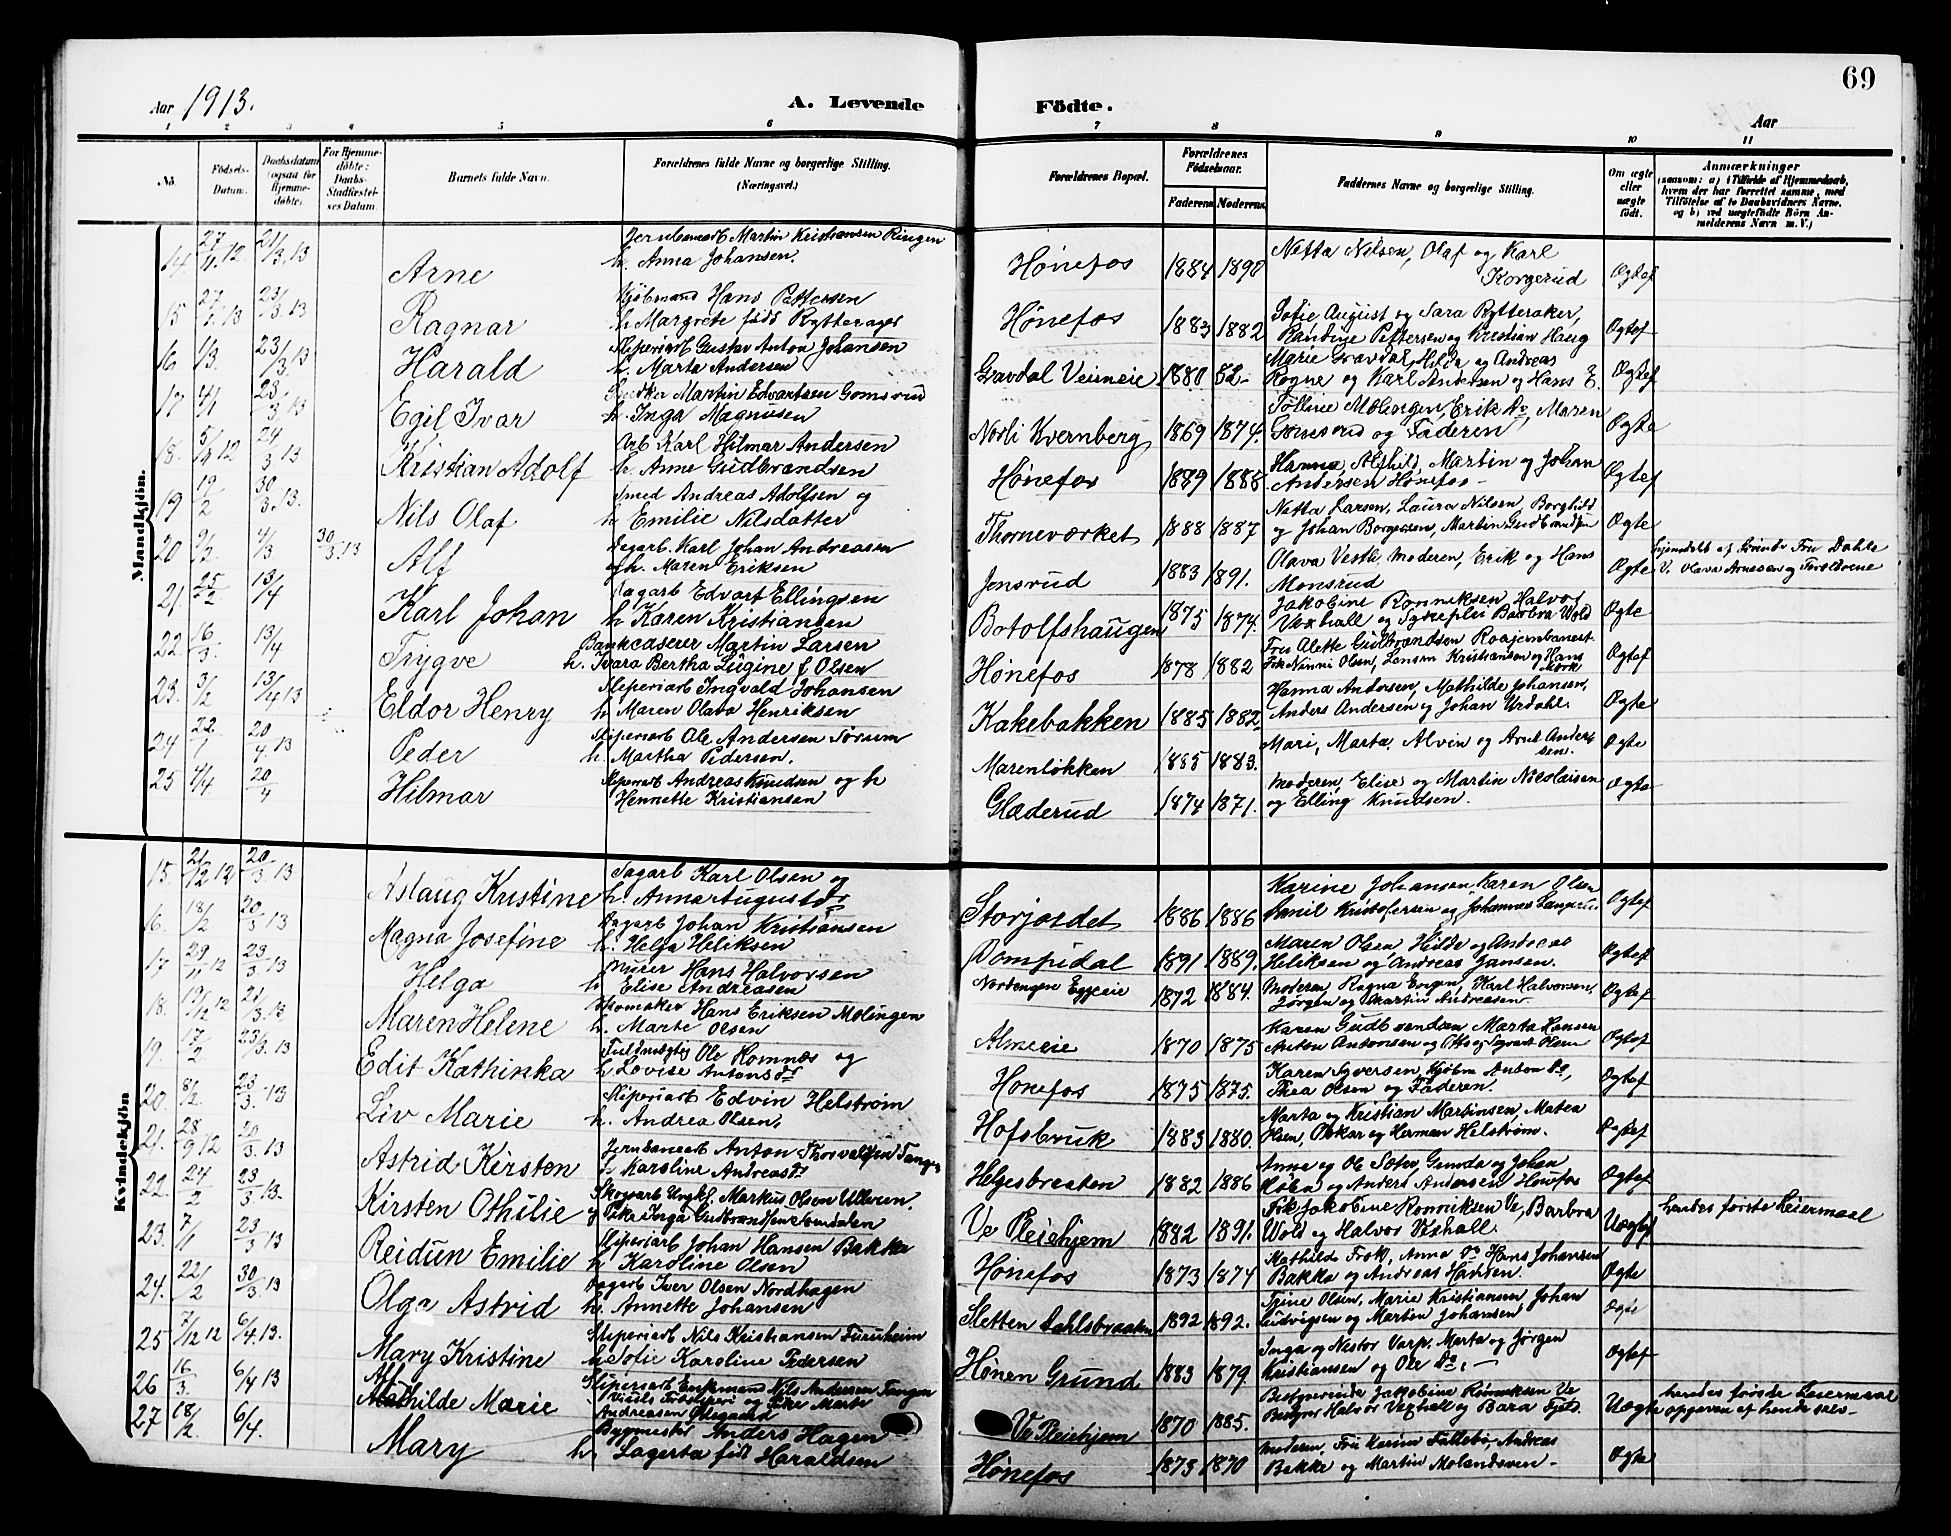 69
Aar 1913. A. Levende Födte. Aar
1 2 3 4 5 6 7 8 9 10 11
No.
Födsels-Datum.
Daabsdatum (ogsaa for Hjemme-döbte).
For Hjemme-döbte: Daabs-Stadfæstel-ses Datum.
Barnets fulde Navn.
Forældrenes fulde Navne og borgerlige Stilling. (Næringsvei.)
Forældrenes Bopæl.
Forældrenes Födselsaar. Faderens. Moderens.
Faddernes Navne og borgerlige Stilling.
Om ægte eller uægte födt.
Anmærkninger (saasom: a) i Tilfælde af Hjemmedaab, hvem der har forrettet samme, med Tilföielse af to Daabsvidners Navne, og b) ved uægtefödte Börn An-melderens Navn m. V.)
Mandkjön.
14 27/11 12 21/3 13 Arne Jernbanearb Martin Kristiansen Ringen h. Anna Johansen. Hønefos 1884 1890 Netta Nilsen, Olaf og Karl Korgerud Ægtef
15 27/1 13 23/3 13 Ragnar Kjøbmand Hans Pettersen h Margrete født Rytterager Hønefos 1883 1882 Sofie August og Sara Rytteraker, Randine Pettersen og Kristian Haug Ægtef
16 1/3. 23/3 13 Harald Sliperiarb Gustav Anton Johansen h. Marta Andersen Gravdal Veimeie 1880 82- Marie Gravdal, Hilda og Andreas Rogne og Karl Andersen og Hans E. Ægtef
17 4/1 23/3 13 Egil Ivar Snedker Martin Edvartsen Gomsrud h. Inga Magnusen Norli Kvernberg 1869 1874. Tolline Molingen, Erik Do, Maren Gomsrud og Faderen Ægte
18. 12 24/3 13 Kristian Adolf Arb Karl Hilmar Andersen h. Anne Gudbrandsen Hønefos 1889 1888 Hanna, Alfhild, Martin og Johan Andersen Hønefos - Ægtef
19 19/2 30/3. 13. Nils Olaf Smed Andreas Adolfsen og h Emilie Nilsdatter Thorneværket 1888 1887 Netta Larsen, Laura Nilsen, Borghild og Johan Borgersen, Martin Gudbrandsen Ægte
20 9/2 4/3 30/3 13 Alf Dagarb. Karl Johan Andreasen og h. Maren Eriksen Jensrud 1883 1891. Olava Vestli Moderen, Erik og Hans Monsrud Ægte Hjemdøbt af Fru Dahle V. Olava Arnesen og Forældrene
21 25/2 13/4 Karl Johan Dagarb. Edvart Ellingsen h Karen Kristiansen Botolfshaugen 1875 1874. Jakobine Rønniksen, Halvor Vexhall og Barbra Wold Ægte
22 16/3. 13/4 Trygve Bankcaserer Martin Larsen h. Ivara Bertha Lugine f Olsen Hønefos 1878 1882 Fru Alette Gulbrandsen Frk Nanni Olsen, Kristiansen og Hans Mørk Ægtef
23. 3/2 13/4 13 Eldor Henry Sliperiarb Ingvald Johansen h Maren Olava Henriksen Kakebakken 1885 1882 Hanna Andersen, Mathilde Johansen, Anders Andersen og Johan Urdahl. Ægte
24 22/1 20/4. 13 Peder Sliperiarb Ole Andersen Sørum h. Martha Pedersen. Marenløkken 1885 1883. Mari, Marta, Alvin og Arnt Andersen. Ægte
25 4/4 20/4 Hilmar Sliperiarb Andreas Knudsen og h Hennette Kristiansen Glæderud 1874 1871. Moderen, Elise og Martin Nicolaisen og Elling Knudsen. Ægte
Kvindekjön
15. 21/12 12 20/3 13 Aslaug Kristine Dagarb Karl Olsen og h. Anna Augustdr Storjordet 1886 1886 Karine Johansen, Karen Olsen Emil Kristofersen og Johannes Ægtef
16. 18/2 20/3 13 Magna Josefine Dagarb Johan Kristiansen h. Helga Heliksen Pompidal 1891 1889. Maren Olsen Hilda og Andreas Heliksen og Andreas Jansen. Ægtef
17 29/11 12 23/3 13 Helga Murer Hans Halvorsen h Elise Andreasen Nordengen Eggeeie 1872 1884. Moderen, Ragna Engen, Karl Halvorsen, Jørgen og Martin Andreasen Ægtef
18. 19/12 12 21/3. 13 Maren Helene Skomaker Hans Eriksen Molingen h. Marte Olsen Almeeie 1870 1875 Karen Gudbrandsen Marta Hansen Anton Antonsen og Olsen Ægtef
19. 17/2 23/3. 13 Edit Kathinka Fuldmægtig Ole Homnæs og h Lovise Antonsdr Hønefos 1875 1875. Karen Syversen, Kjøbm Anton Do, Thea Olsen og Faderen. Ægtef
20. 8/2. 23/3. 13 Liv Marie Sliperiarb Edvin Helstrøm h. Andrea Olsen. Hofsbruk 1883 1880. Marta og Kristian Martinsen, Matea Olsen, Oskar og Herman Helstrøm. Ægtef
21. 28/9 12 20/3. 13 Astrid Kirsten Jernbanearb Anton Thorvaldsen Tangen h Karoline Andreasdr Helgesbraaten 1882 1886 Anne og Ole Gunda og Johan og Anders Andersen Hønefos Ægtef
22. 24/2 23/3 13. Kirsten Othilie Skogsarb Ungkl. Markus Olsen Ulveien. og Pike Inga Gudbrandsen Ve Pleiehjem 1882 1891. Frk Jakobine Rønniksen Ve, Barbra Wold og Halvor Vexhall. Uægtef hendes første Leiermaal
23. 7/1 23/3 13 Reidun Emilie Sliperiarb Johan Hansen Bakka h Karoline Olsen Hønefos 1873 1874 Mathilde Frok, Anna Do Hans Johansen Bakka og Andreas Hansen. Ægte
24. 22/2 30/3 13 Olga Astrid Dagarb Iver Olsen Nordhagen h. Annette Johansen Sletten Dahlsbraaten 1892 1892. Trine Olsen, Marie Kristiansen Johan Ludvigsen og Martin Johansen Ægte
25 7/12 12 6/4. 13. Mary Kristine Sliperiarb Nils Kristiansen Furuheim h Sofie Karoline Pedersen Hønen Grund 1883 1879. Inga og Nestor Varp, Marta og Jørgen Kristiansen og Ole Do. - Ægtef
26 16/3. 6/4 13 Mathilde Marie Sliperiarb Enkemand Nils Andersen Tangen og Pike Marte Andreasen Ødegaard Ve Pleiehjem 1870 1885. Bestyrerinde Jakobine Rønniksen Ve Bestyrer Halvor Vexhall og Bara Uægte hendes første Leiermaal opgiven af hende selv -
27 18/2. 6/4. Mary Bygmester Anders Hagen h. Lagerta født Haraldsen Hønefos 1873 1870 Moderen, Fru Karine Follebø, Andreas Bakke og Martin Molandsveen - Ægte